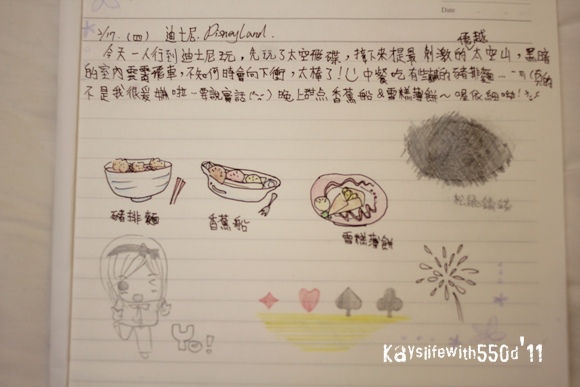 Date
2/17. (四) 迪士尼 Disneyland.
飛越
今天一人行到迪士尼玩,先玩了太空飛碟,接下來提最刺激的太空山,黑暗
的室內雲霄飛車,不知何時會向下衝,太棒了! 中餐吃有些鹹的豬排麵…
不是我很愛嫌啦…要說實話 晚上甜点香蕉船&雪糕薄餅~喔依細呦!
豬排麵
香蕉船
雪糕薄餅
Yo!
Kayslifewith550d'11